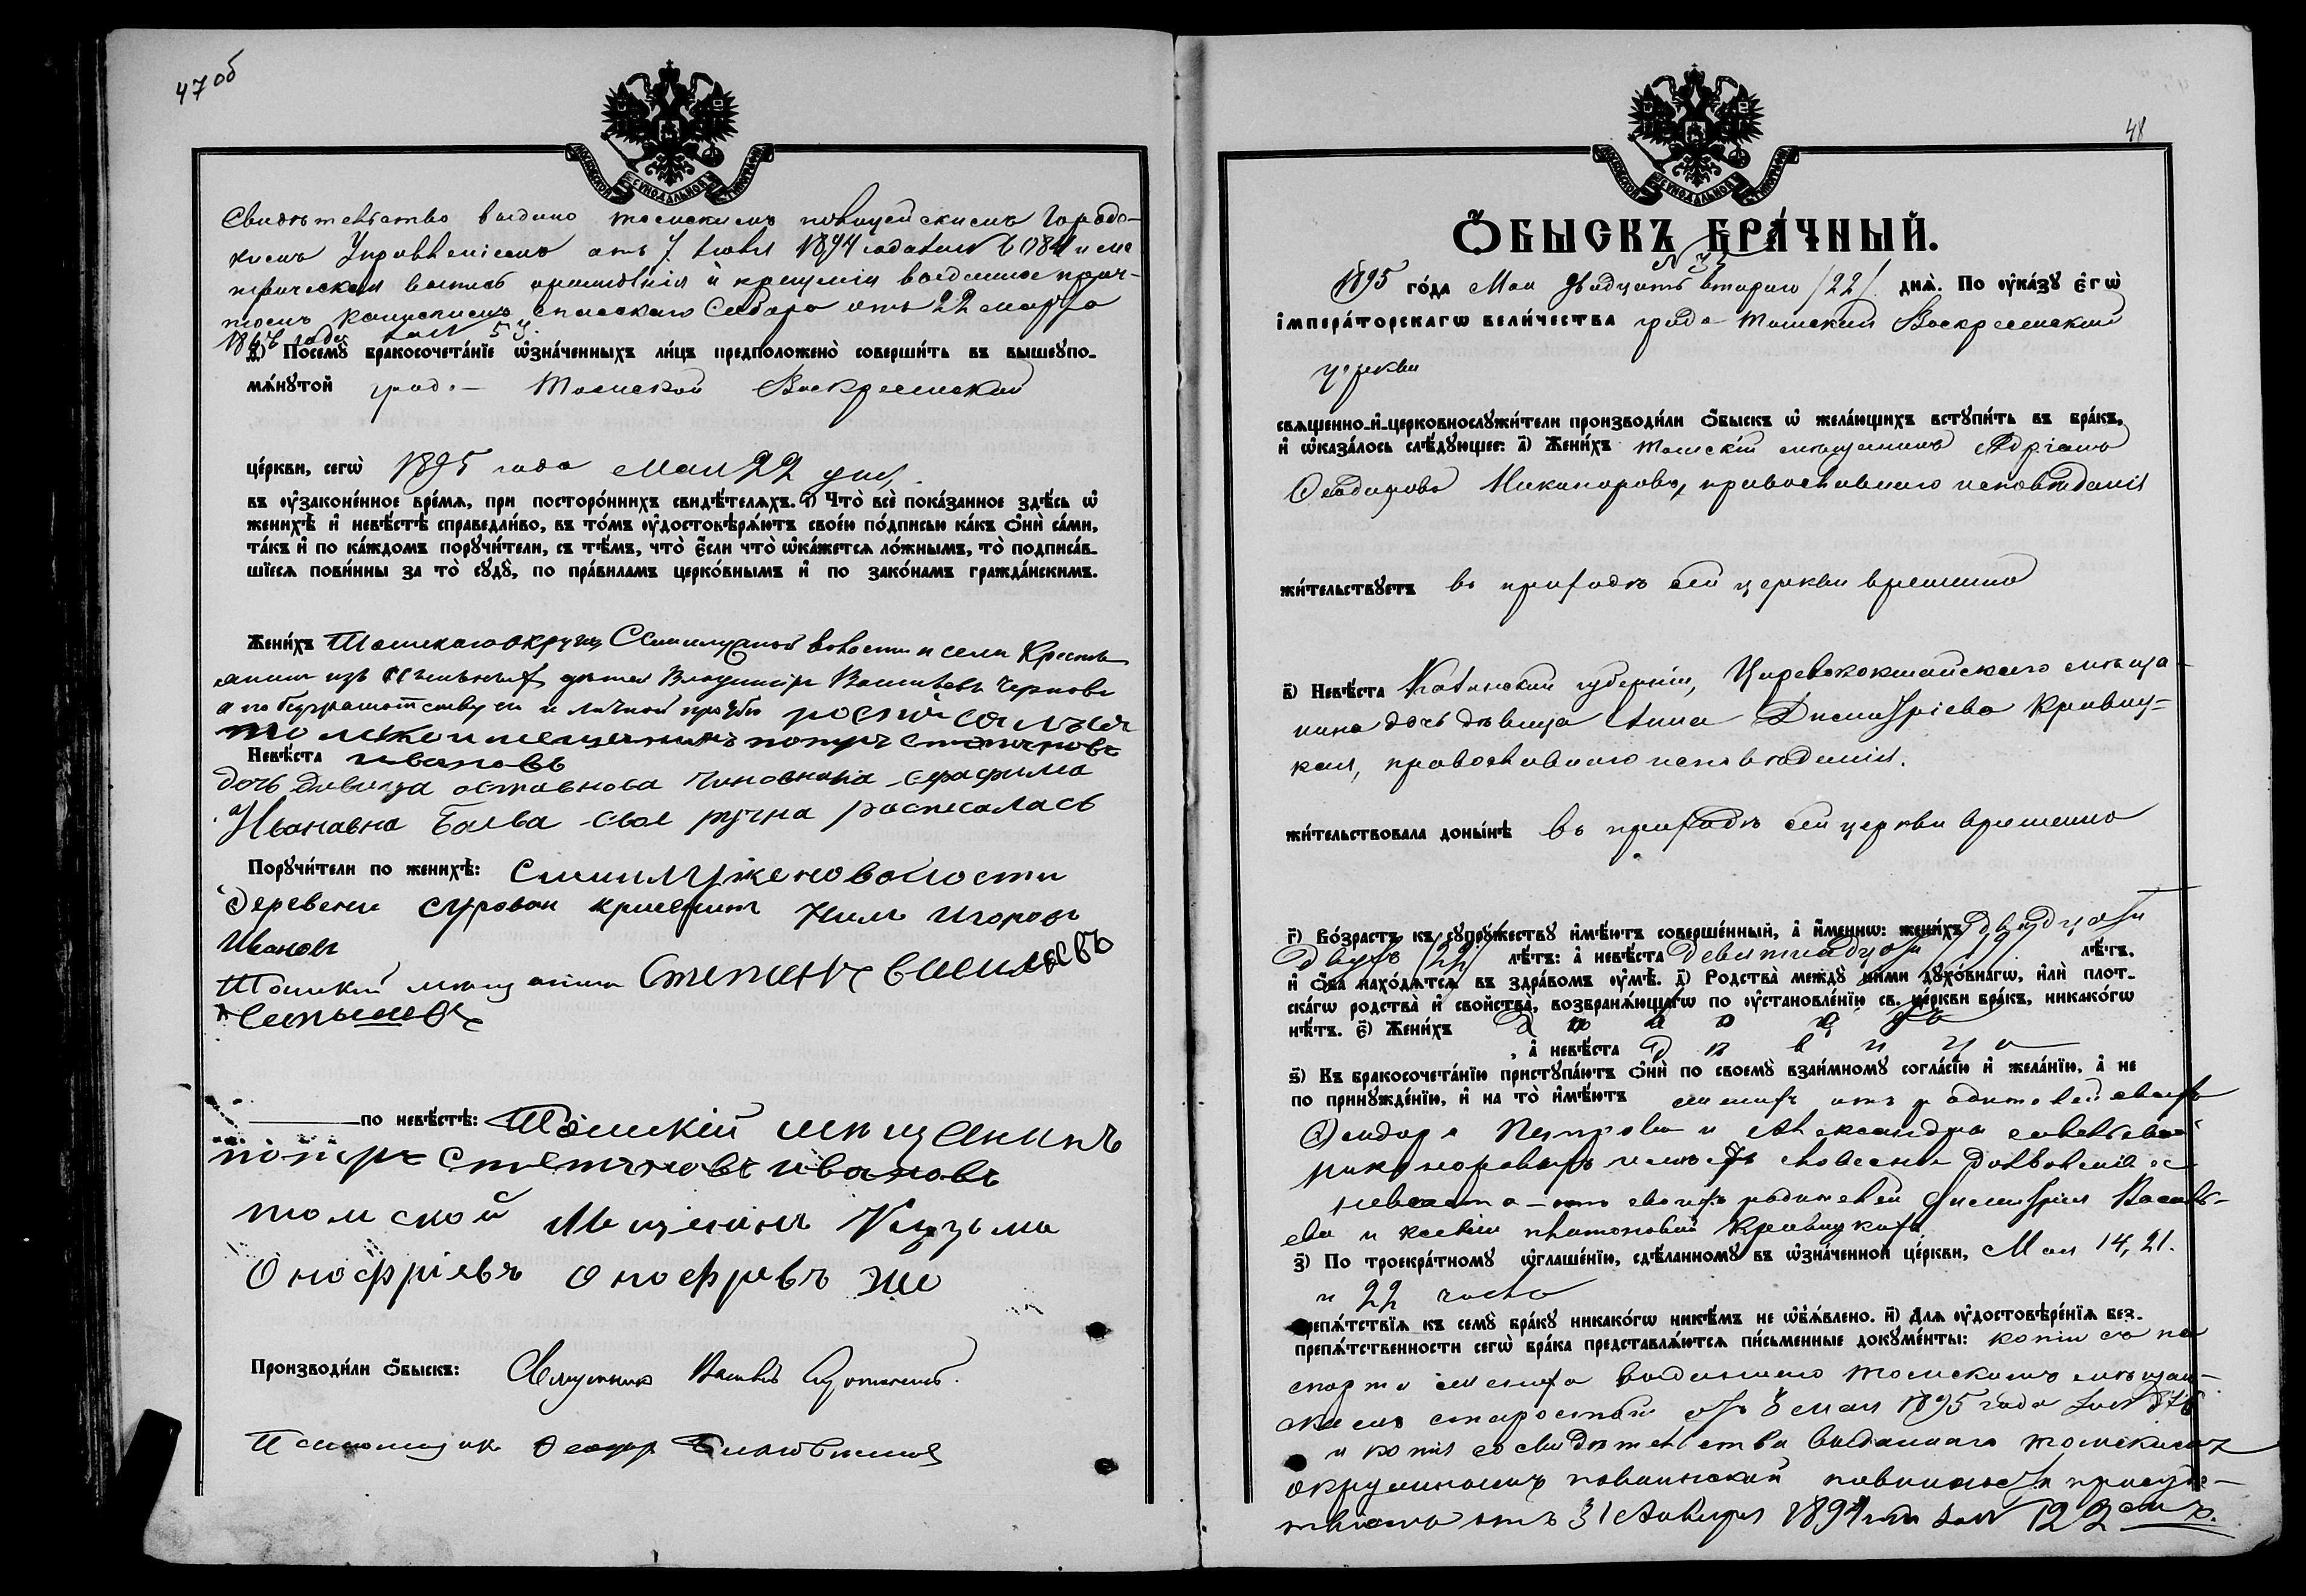 47 об
МОСКОВСКОЙ СѴНОДАЛЬНОЙ ТИПОГРАФІИ
Свидѣтельство выдано томскимъ полицейскимъ Городс-
кимъ Управленіемъ отъ 7 Іюня 1894 года и ме
трическая выпись о рожденіи и крещеніи выданное прич-
томъ Спасскаго Собора отъ 22 марта
ѳ҃) Посемꙋ̀ бракосочета́нїе ѡ҆зна́ченныхъ ли́цъ предположено̀ соверши́ть въ вышеꙋпо-
мѧ́нꙋтой градо- Томской Воскресенской
це́ркви, сегѡ̀ 1895 года Мая 22 дня.
въ ᲂу҆законе́нное вре́мѧ, при посторо́ннихъ свидѣ́телѧхъ. і҃) Что̀ всѐ пока́занное здѣ́сь ѡ҆
женихѣ̀ и҆ невѣ́стѣ справедли́во, въ то́мъ ᲂу҆достовѣрѧ́ютъ свое́ю по́дписью ка́къ ѻ҆нѝ са́ми,
та́къ и҆ по ка́ждомъ порꙋчи́тели, съ тѣ́мъ, что̀ є҆́сли что̀ ѡ҆ка́жетсѧ ло́жнымъ, то̀ подписа́в-
шїесѧ пови́нны за то̀ сꙋдꙋ̀, по пра́виламъ церко́внымъ и҆ по зако́намъ гражда́нскимъ.
Жени́хъ Томскаго округа Семилужной волости и села Кресть
янинъ изъ дѣтей Владиміръ Васильевъ Черновъ
а по безграмотству его и личной прозьбѣ росписался
томской мещанинъ петръ степановъ
Невѣ́ста ивановъ
дочь Девица чиновника Серафима
Ивановна Баева свое ручна росписалась
Порꙋчи́тели по женихѣ̀: Симилуженой волости
деревени суровой Нилъ Игоровъ
Ивановъ
Томскій мещанинъ Степанъ васильевъ
по невѣ́стѣ: Томскій мѣщанинъ
петръ степановъ ивановъ
томской Мещанинъ Кузьма
Онофріевъ Онофревъ же
Производи́ли ѻ҆́быскъ: Священникъ
Псаломщикъ Ѳеодоръ
48
МОСКОВСКОЙ СѴНОДАЛЬНОЙ ТИПОГРАФІИ
Ѻ҆́БЫСКЪ БРА́ЧНЫЙ.
№ 33
1895 го́да Мая двадцать втораго /22/ днѧ̀. По ᲂу҆ка́зꙋ є҆гѡ̀
і҆мпера́торскагѡ вели́чества градо-Томской Воскресенской
церкви
свѧщенно-и҆-церковнослꙋжи́тели производи́ли ѻ҆́быскъ ѡ҆ жела́ющихъ встꙋпи́ть въ бра́къ,
и҆ ѡ҆каза́лось слѣ́дꙋющее: а҃) Жени́хъ Томскій мѣщанинъ Адріанъ
Ѳеодоровъ Никаноровъ, православнаго исповѣданія
жи́тельствꙋетъ въ приходѣ сей церкви временно
в҃) Невѣ́ста Казанской губерніи, Царевококшайскаго мѣща-
нина дочь дѣвица Анна Димитріева Кривиц-
кая, православнаго исповѣданія.
жи́тельствовала доны́нѣ въ приходѣ сей церкви временно
г҃) Во́зрастъ къ сꙋпрꙋ́жествꙋ и҆мѣ́ютъ соверше́нный, а҆ и҆́меннѡ: жени́хъ двадцати
двухъ /22/ лѣ́тъ: а҆ невѣ́ста девятнадцати /19/ лѣ́тъ,
и҆ ѻ҆́ба нахо́дѧтсѧ въ здра́вомъ ᲂу҆мѣ̀. д҃) Родства̀ междꙋ̀ ни́ми дꙋхо́внагѡ, и҆лѝ плот-
ска́гѡ родства̀ и҆ свойства̀, возбранѧ́ющагѡ по ᲂу҆становле́нїю св. це́ркви бра́къ, никако́гѡ
нѣ́тъ. є҃) Жени́хъ холостъ
, а҆ невѣ́ста дѣвица
ѕ҃) Къ бракосочета́нїю пристꙋпа́ютъ ѻ҆нѝ по своемꙋ̀ взаи́мномꙋ согла́сїю и҆ жела́нїю, а҆ не
по принꙋжде́нїю, и҆ на то̀ и҆мѣ́ютъ женихъ отъ родителей своихъ
Ѳеодора Петрова и Александры Савельевой
Никаноровыхъ словесное дозволеніе а
невеста - отъ своихъ родителей Димитрія Василь-
ева и Ксеніи Платоновой Кривицкихъ
з҃) По троекра́тномꙋ ѡ҆глаше́нїю, сдѣ́ланномꙋ въ ѡ҆зна́ченной це́ркви, Мая 14, 21.
и 22 числа
препѧ́тствїѧ къ семꙋ̀ бра́кꙋ никако́гѡ никѣ́мъ не ѡ҆б̾ѧ́влено. и҃) Длѧ ᲂу҆достовѣре́нїѧ без-
препѧ́тственности сегѡ̀ бра́ка представлѧ́ютсѧ пи́сьменные докꙋме́нты: копія съ па
спорта жениха выданнаго томскимъ мѣщан-
скимъ старостой отъ 8 мая 1895 года за №
и копія со свидѣтельства выданнаго томскимъ
окружнымъ по воинской повинности присут-
ствіемъ отъ 31 Января 1894 года за № 122